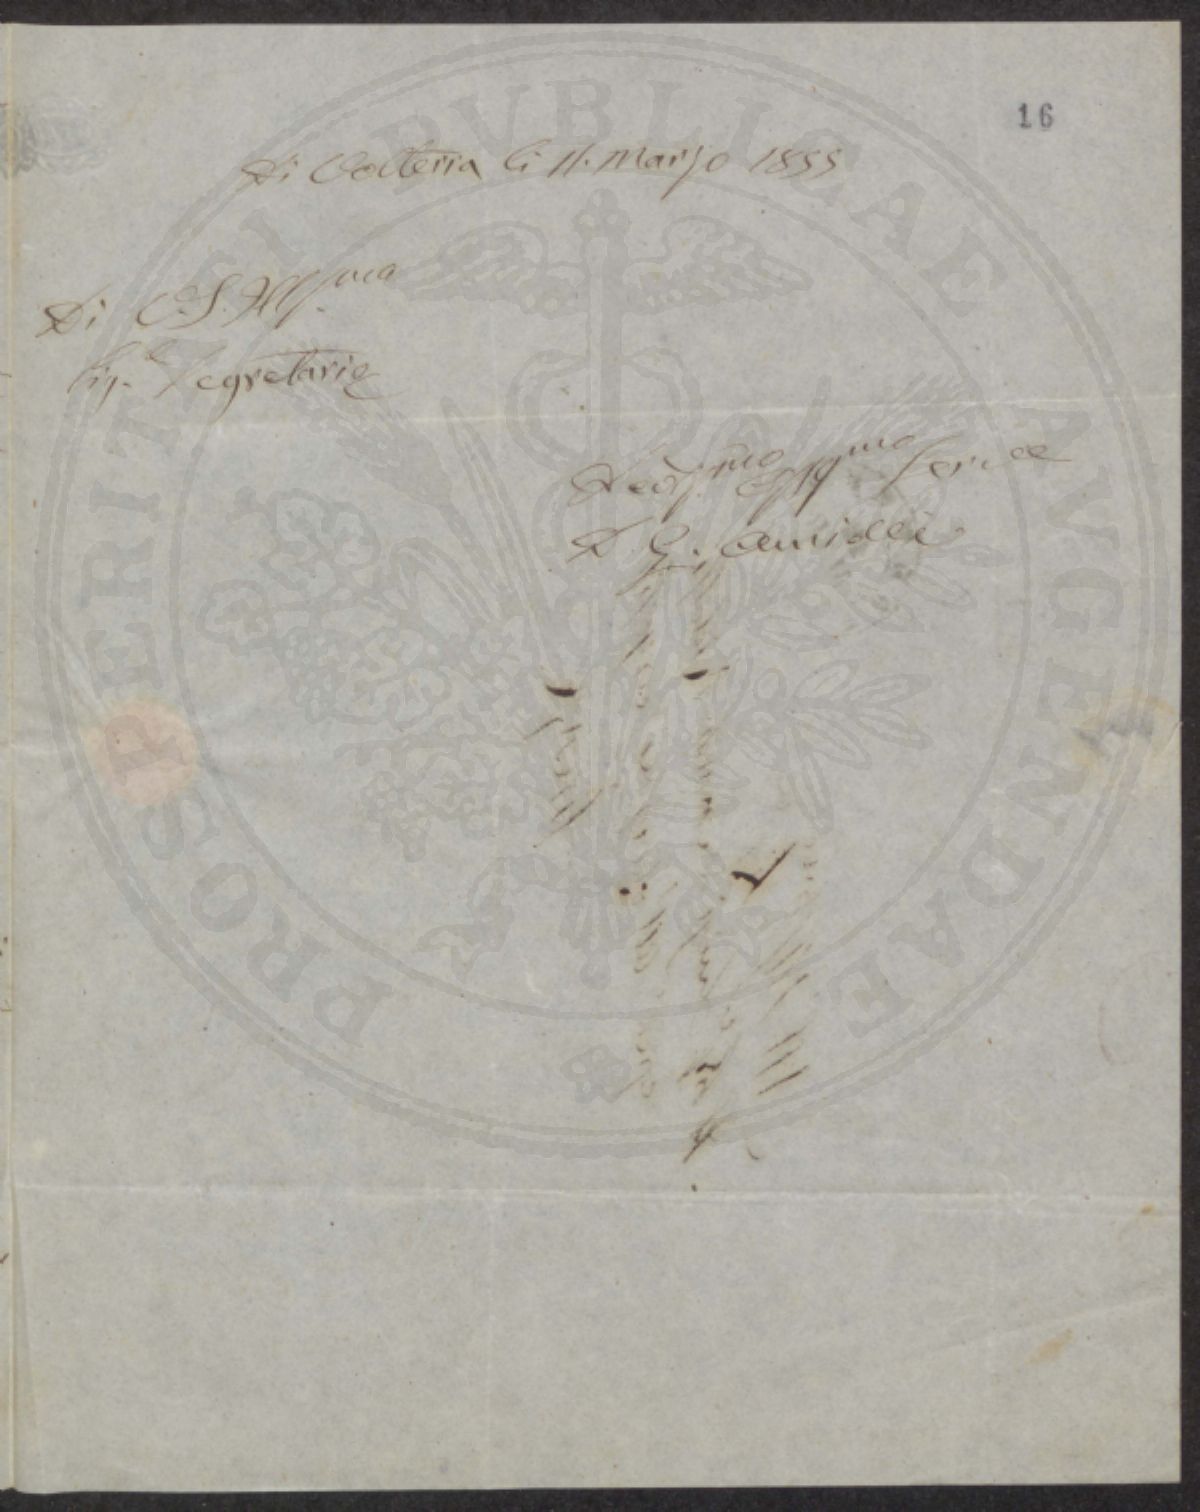 16
Di Volterra li 11. Marzo 1855
Di V. S. Ill.ma
Sig. Segretario
Dev.mo Serve
D. G. Amidei
PROSPERITATI PVBLICAE AVGENDAE